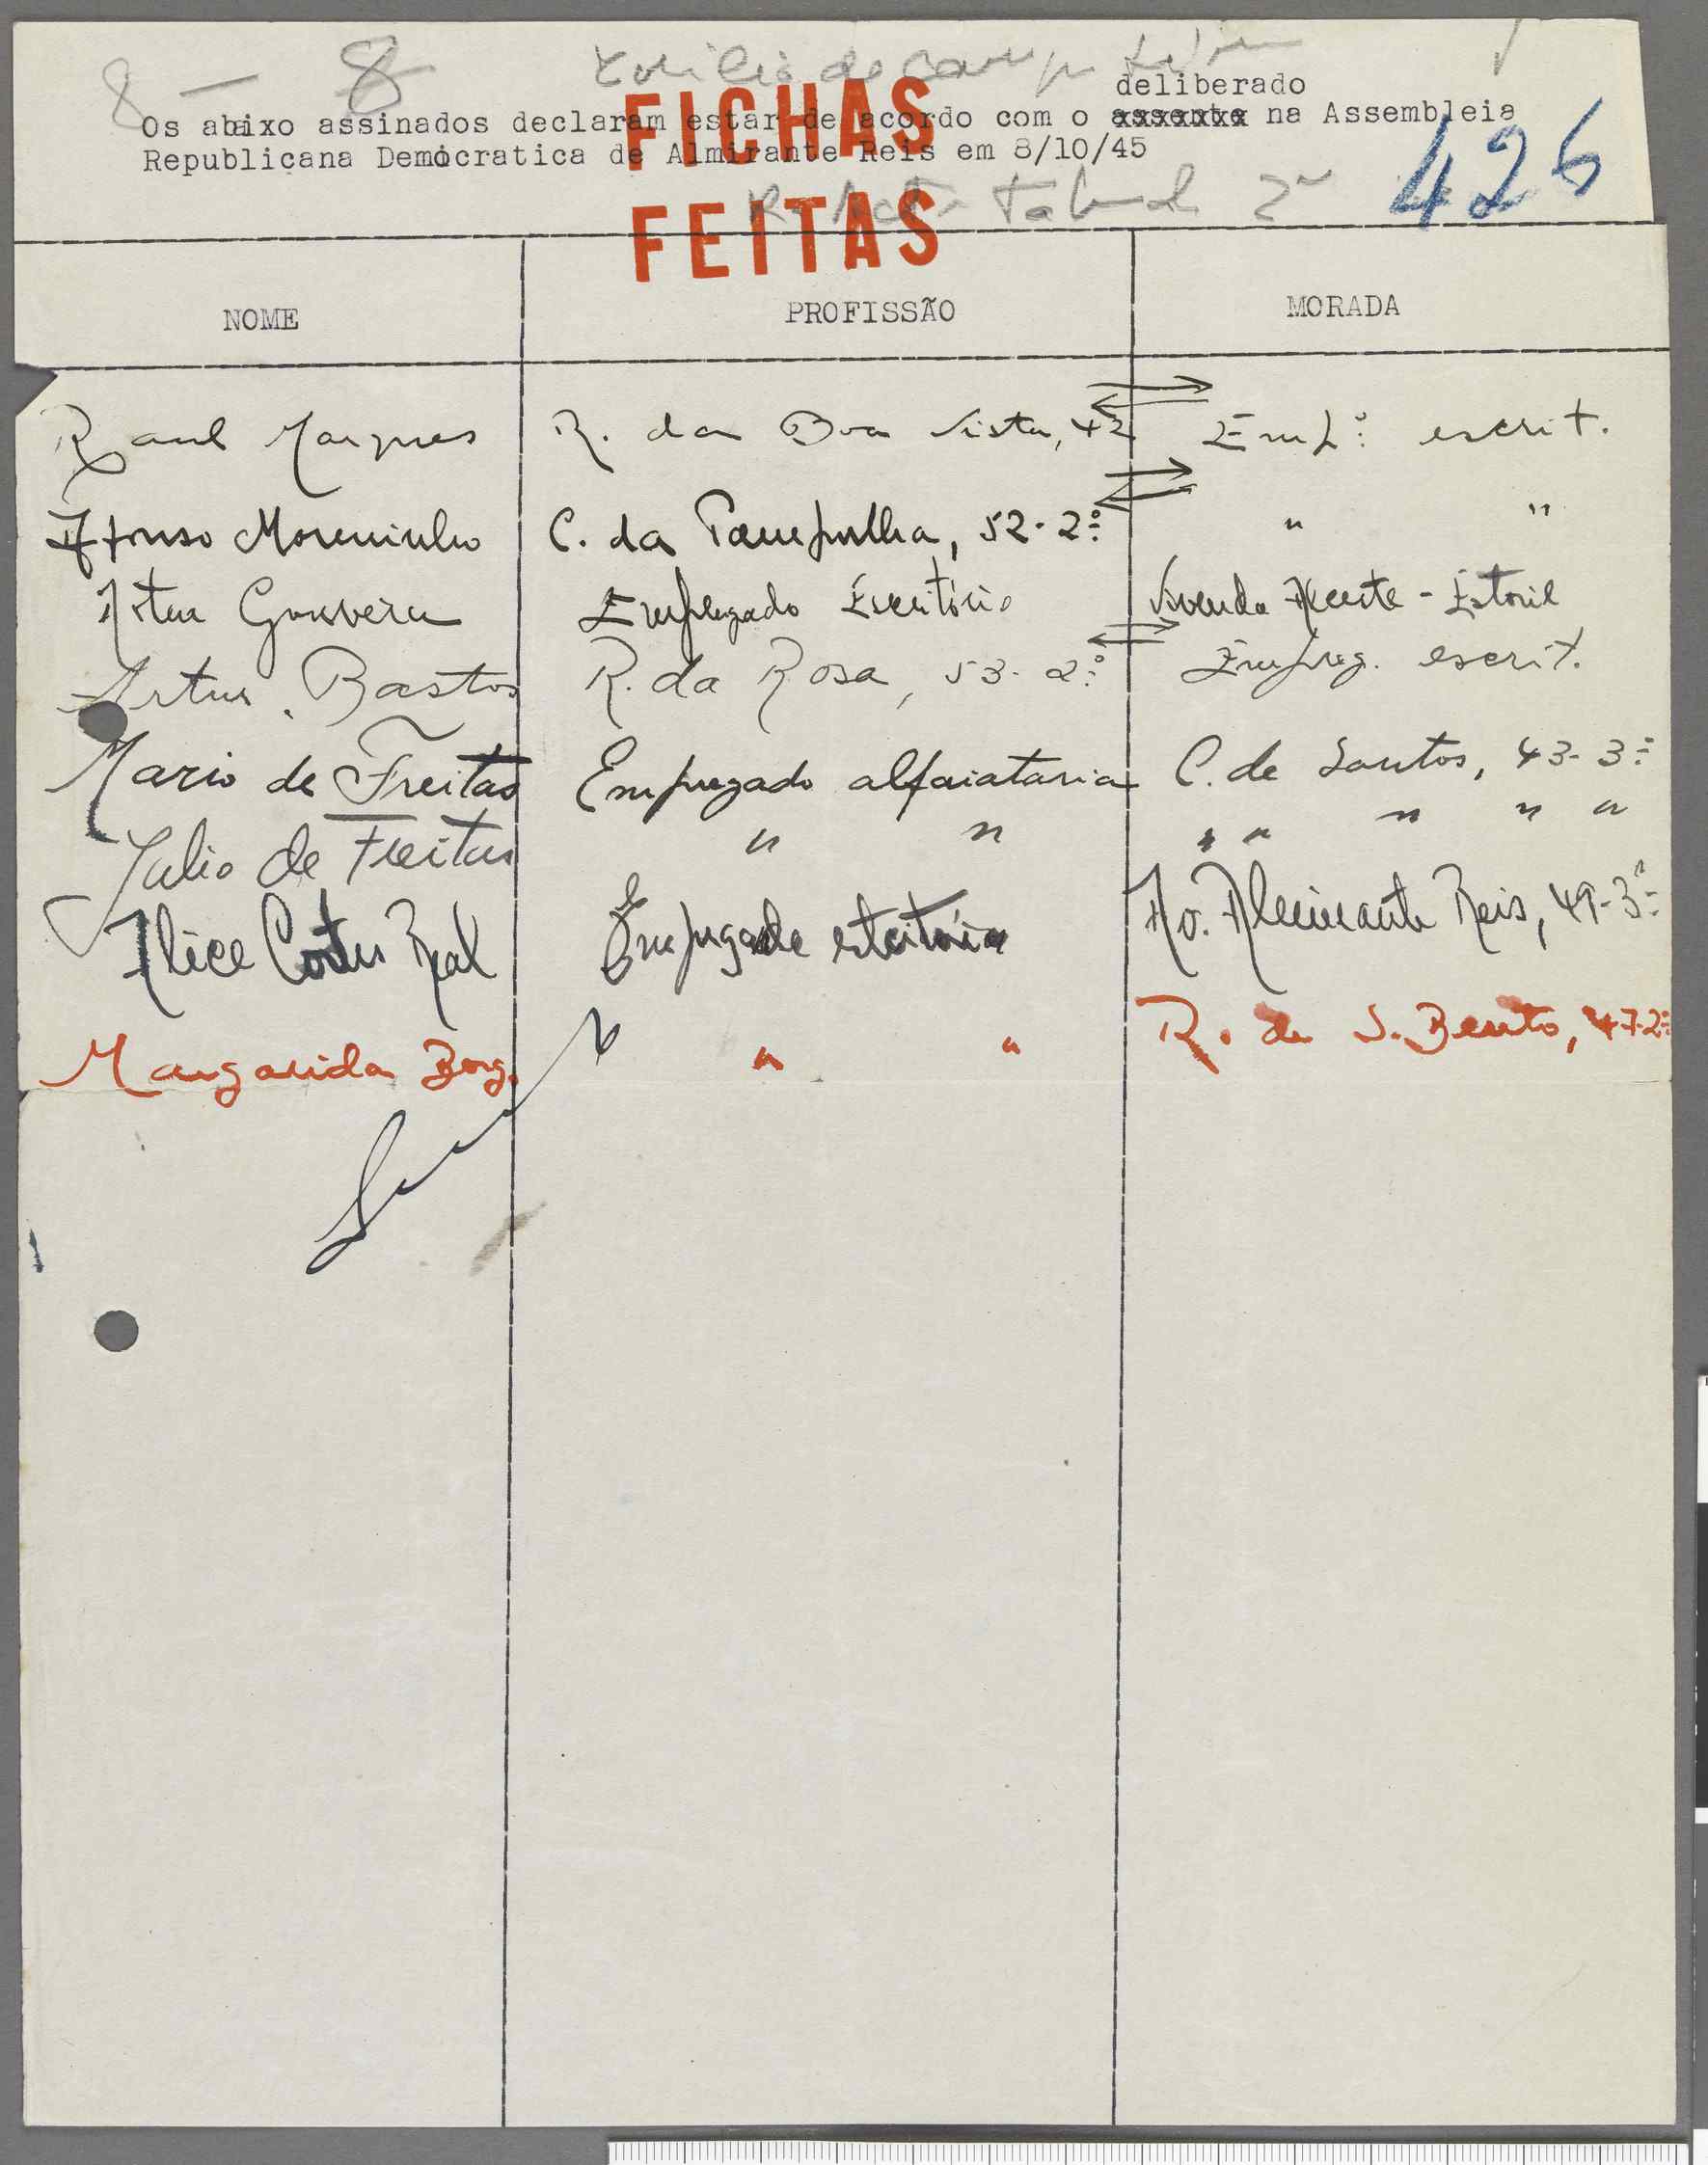 8 — 8
deliberado
Os abaixo assinados declaram estar de acordo com o na Assembleia
Republicana Democratica de Almirante Reis em 8/10/45
FICHAS
FEITAS
2º
426
NOME PROFISSÃO MORADA
Raul Marques R. da Boa Vista, 42 Empº escrit.
Afonso Moreninho C. da Pampulha, 52-2º " "
Artur Gouveia Empregado Escritório Avenda - Estoril
Artur Bastos R. da Rosa, 53-2º Empreg. escrit.
Mario de Freitas Empregado alfaiataria C. de Santos, 43-3º
Julio de Freitas " " " " " " "
Alice Corte Real Empregada escritório Av. Almirante Reis, 49-3º
Margarida Borg. " " R. de S. Bento, 47-2º